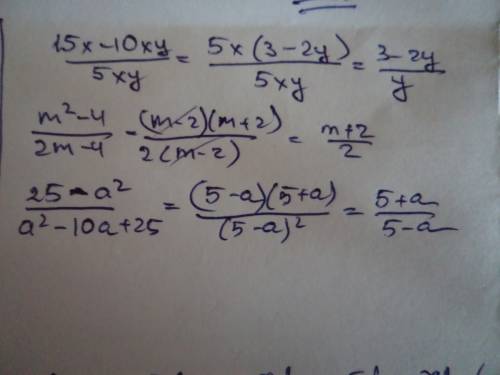 15x-10xy/5xy = 5x(3-2y)/5xy = 3-2y/y
m²-4/2m-4 - (m-2)(m+2)/2(m-2) = m+2/2
25-a²/a²-10a+25 = (5-a)(5+a)/(5-a)² = 5+a/5-a